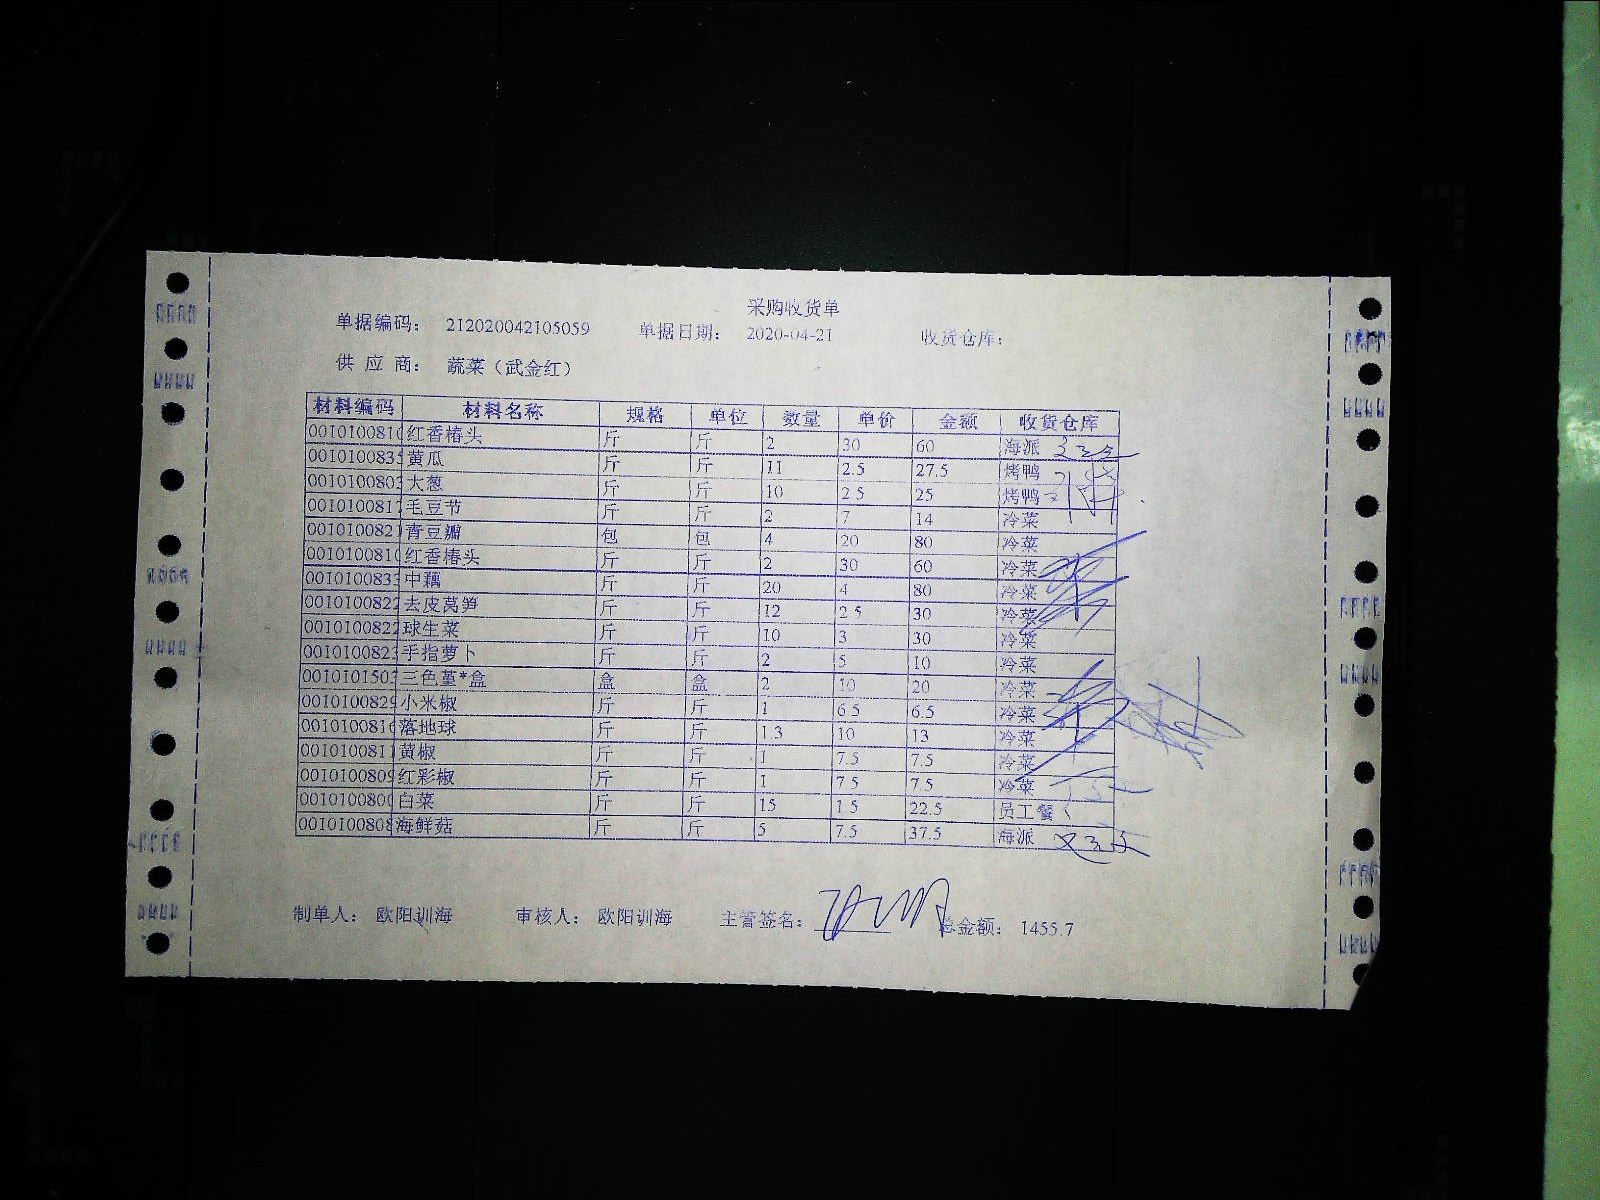 采购收货单
单据编码: 212020042105059 单据日期: 2020-04-21 收货仓库:
供 应 商: 蔬菜（武金红）
材料编码 材料名称 规格 单位 数量 单价 金额 收货仓库
001010081 红香椿头 斤 斤 2 30 60 海派
001010083 黄瓜 斤 斤 11 2.5 27.5 烤鸭
001010080 大葱 斤 斤 10 2.5 25 烤鸭
001010081 毛豆节 斤 斤 2 7 14 冷菜
001010082 青豆瓣 包 包 4 20 80 冷菜
001010081 红香椿头 斤 斤 2 30 60 冷菜
001010083 中藕 斤 斤 20 4 80 冷菜
001010082 去皮莴笋 斤 斤 12 2.5 30 冷菜
001010082 球生菜 斤 斤 10 3 30 冷菜
001010082 手指萝卜 斤 斤 2 5 10 冷菜
001010150 三色堇*盒 盒 盒 2 10 20 冷菜
001010082 小米椒 斤 斤 1 6.5 6.5 冷菜
001010081 落地球 斤 斤 1.3 10 13 冷菜
001010081 黄椒 斤 斤 1 7.5 7.5 冷菜
001010080 红彩椒 斤 斤 1 7.5 7.5 冷菜
001010080 白菜 斤 斤 15 1.5 22.5 员工餐
001010080 海鲜菇 斤 斤 5 7.5 37.5 海派
制单人: 欧阳训海 审核人: 欧阳训海 主管签名: 总金额: 1455.7